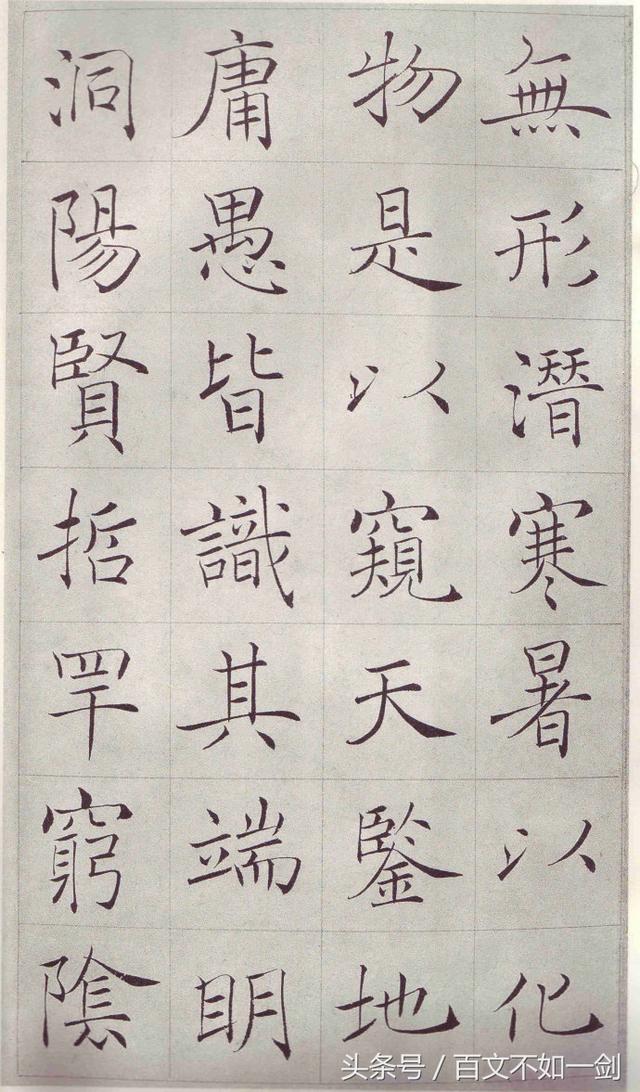 無形潛寒暑以化
物是以窺天鑒地
庸愚皆識其端明
洞陽賢哲罕窮陰
头条号 / 百文不如一剑